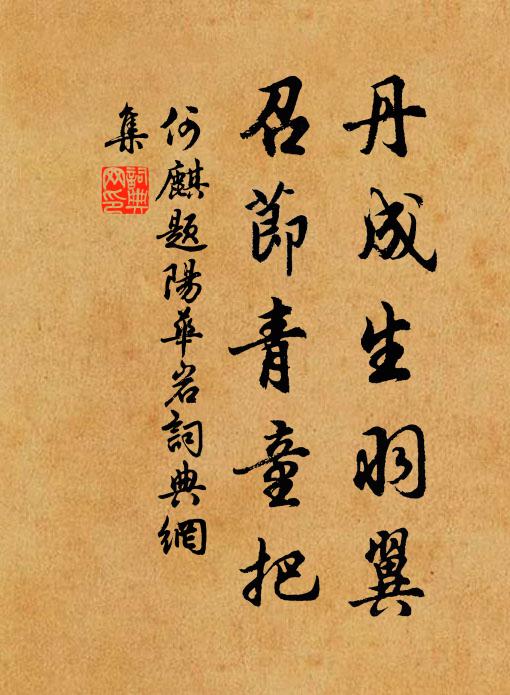 丹成生羽翼
召節青童把
何麒題陽華岩詞典網
集
詞典網印